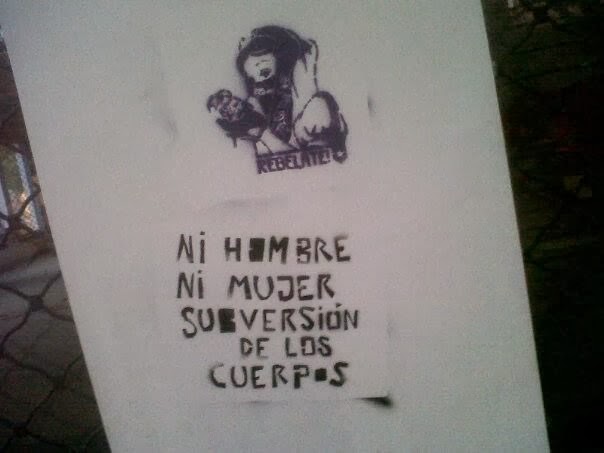 REBELATE!
Ni HOMBRE
Ni MUJER
SUBVERSiÓN
DE LOS
CUERPOS